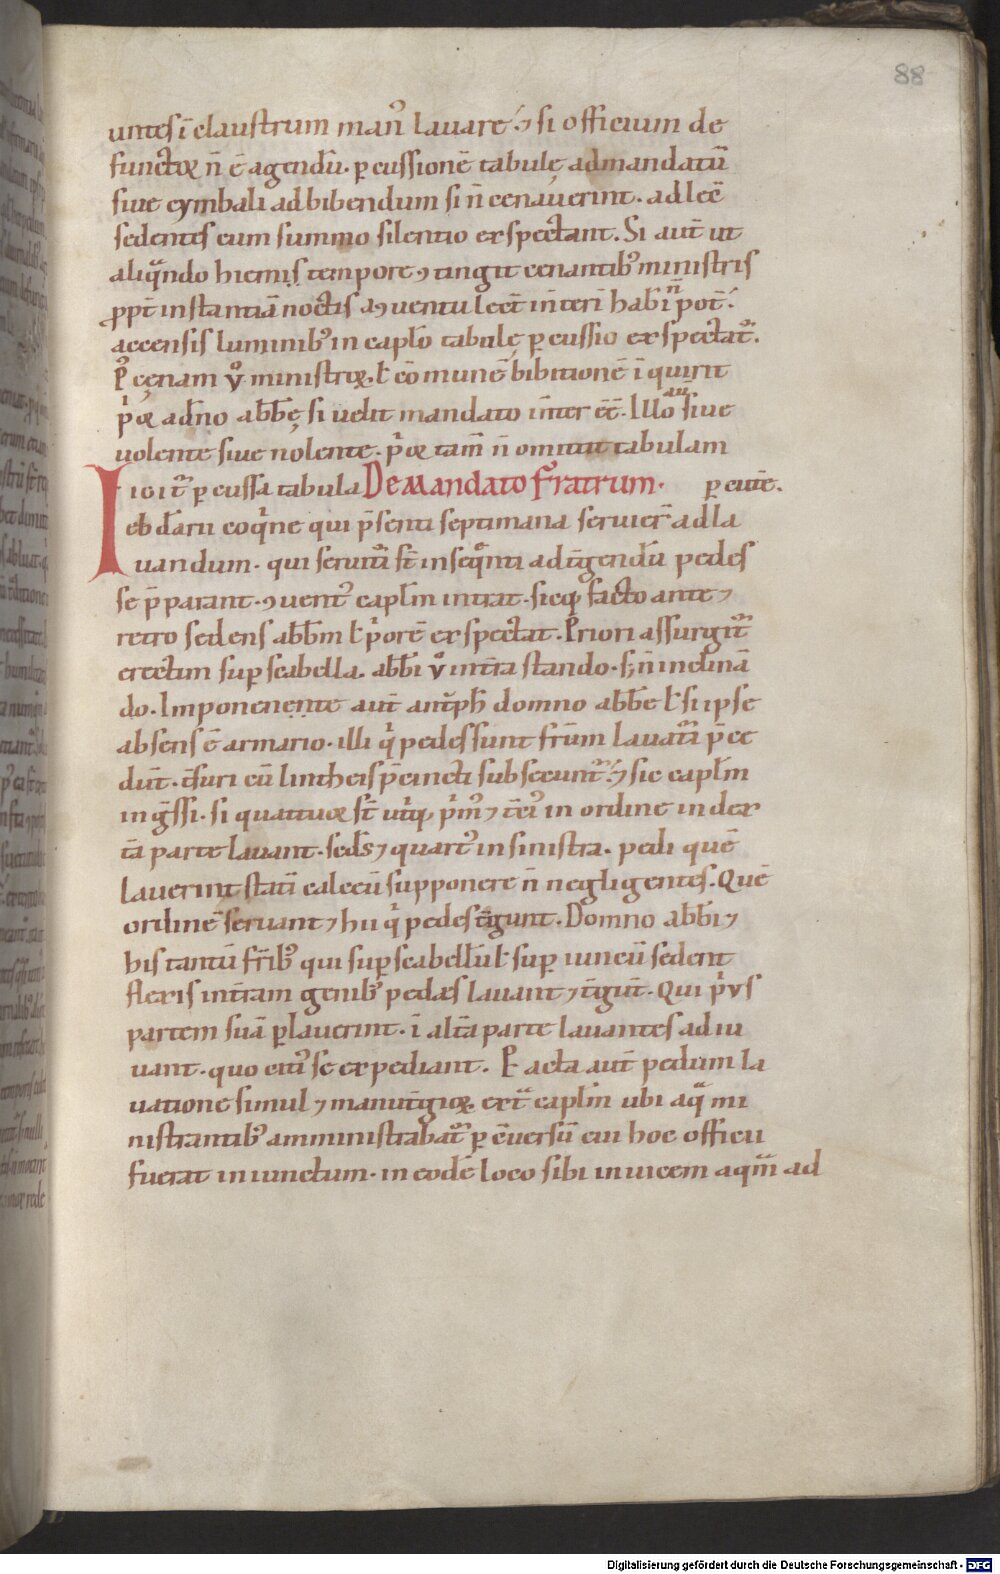 88
untes ī claustrum man᷒ lauare ⁊ si officium de
functoꝝ n̄ ē agendū. ꝑcussionē tabulę admandatū
siue cymbali adbibendum si n̄ cenauerint. adlcē
sedentes cum summo silentio exspectant. Si aut̄ ut
aliqͣndo hiemis tempore ⁊tingit cenantibꝰ ministris
ꝓpt̄ instantiā noctis aduentu lect̄ int̄erī hab̄i n̄ pot̄.
accensis luminibꝰ in capl̄o tabulę ꝑcussio exspectat᷑.
Pꝰ cęnam v̊ ministroꝝ ł cōmunē bibitionē īquirit
p̓oꝝ adn̄o abb̄ę si uelit mandato int̄eręē. Illo aū siue
uolente siue nolente. p̓oꝝ tam̄ n̄ omittit tabulam
De Mandato Fratrum. ꝑcutē.
Igit᷑ ꝑcussa tabula
ebd̄arii coq̓ne qui p̄senti septimana seruier̄ adla
uandum. qui seruituri st̄ insequēnti adt̄gendū pedes
se p̄parant. ⁊uentꝰ capl̄m intrat. sicq; facto ante ⁊
retro sedens abb̄m ł p̓orē exspectat. Priori assurgit᷑
erectim suꝑ scabella. abb̄i v̊ int̄ra stando. s; n̄ inclinā
do. Imponenente aut̄ antip̄h domno abb̄e ł si ipse
absens ē armario. illi q̓ pedes sunt fr̄um lauat̄i p̄ce
dūt. t̄suri cū lintheis p̄cincti subsecunt᷑. ⁊ sic capl̄m
ingr̄ssi. si quattuor st̄ utq̓ꝫ p̓mꝰ ⁊ t̄ciꝰ in ordine in dex
tā parte lauant. sed̄s ⁊ quartꝰ in sinistra. pedi quē
lauerint statī calceū supponere n̄ negligentes. Quē
ordinē seruant ⁊ hii q̓ pedes t̄gunt. Domno abb̄i ⁊
his tantū fr̄ibꝰ qui suꝑ scabellū ł suꝑ iuncū sedent
flexis int̄ram genibꝰ pedes lauant ⁊ t̄gūt. Qui p̓us
partem suā ꝑlauerint. ī alt̄a parte lauantes adiu
uant. quo citiꝰ se expediant. Pacta aut̄ pedum la
uatione simul ⁊ manutīgioꝝ extͣ capl̄m ubi aqͣ mi
nistrantibꝰ amministrabat᷑ ꝑ ēuersū cui hoc officii
fuerat iniunctum. in eodē loco sibi inuicem aqͣm ad
Digitalisierung gefördert durch die Deutsche Forschungsgemeinschaft - DFG